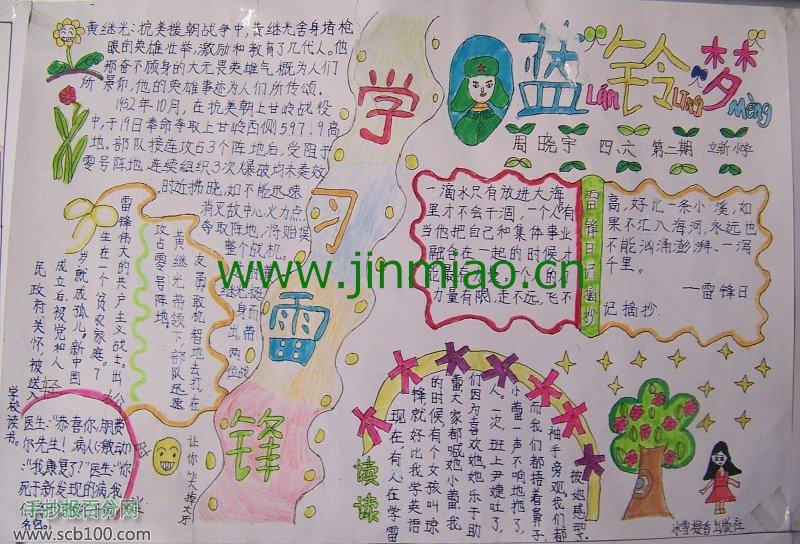 黄继光:抗美援朝战争中,黄继光舍身堵枪
眼的英雄壮举,激励和教育了几代人。他
那奋不顾身的大无畏英雄气概为人们
所景仰,他的英雄事迹为人们所传颂。
1952年10月,在抗美朝上甘岭战役
中,于19日奉命夺取上甘岭西侧597.9高
地,部队接连攻占3个阵地后,受阻于
零号阵地,连续组织3次爆破均未奏效
时近拂晓,如不能迅速
消灭敌中心火力点
夺取阵地,将贻误
整个战机。
学习雷锋
蓝铃梦
Lán Líng Mèng
周晓宇 四、六 第二期 立新小学
一滴水只有放进大海
里才不会干涸,一个人有
当他把自己和集体事业
融合在一起的时候才
力量有限,走不远,飞不
雷锋日记摘抄
高,好比一条小溪,如
果不汇入海河,永远也
不能汹涌澎湃、一泻
千里。
—雷锋日
记摘抄
www.jinmiao.cn
雷锋伟大的共产主义战士。出
生在一个贫农家庭。7
岁就成孤儿。新中国
成立后,被党和人
民政府关怀,被送入
学校读书。
友勇敢机智地去打,在
黄继光带领下,部队迅速
攻占零号阵地。
医生:“恭喜你,朋费
尔先生!病人(激动)
:“我康复了?”医生:“你
死于新发现的病,我
让你笑掉大牙
读读
现在,有人在学雷
锋就好比我学英语
的时候,有个女孩叫琼
蕾大家都喊她小蕾,我
们因为喜欢她。她乐于助
人。一次班上尹婕吐了,
小蕾一声不响地拖了,
而我们都捂着鼻子
袖手旁观。我们都
被她感动了。
冰雪凝香出版社
手抄报百分网
www.scb100.com